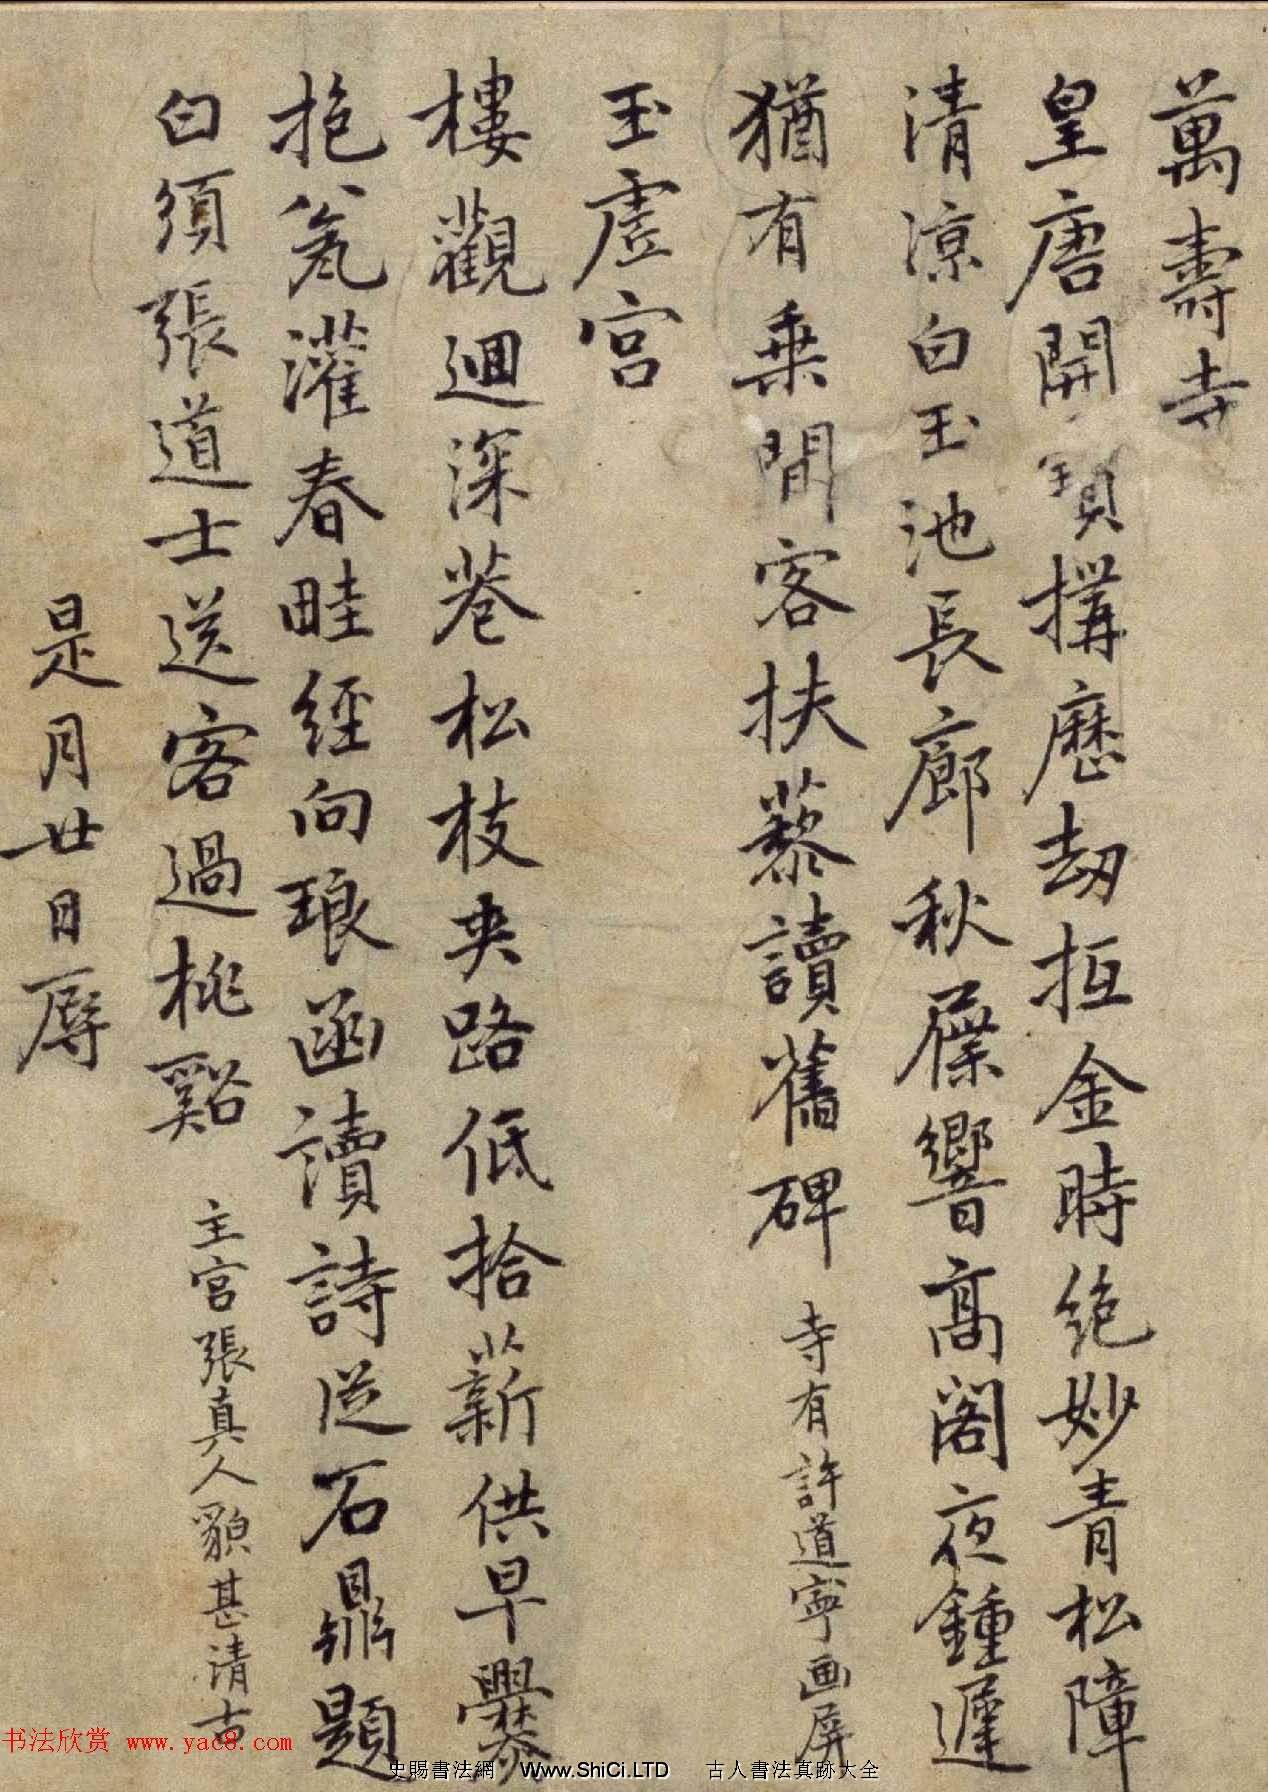 萬壽寺
皇唐開寶構歷劫抵金時絕妙青松障
清涼白玉池長廊秋屧響高閣夜鍾遲
猶有乘閒客扶藜讀舊碑 寺有許道寧画屏
玉虛宮
樓觀迴深巷松枝夾路低拾薪供早爨
抱瓮灌春畦經向琅函讀詩從石鼎題
白須張道士送客過桃谿 主宮張真人貌甚清古
是月廿日
书法欣赏 www.yac8.com
史賜書法網 www.ShiCi.LTD 古人書法真跡大全